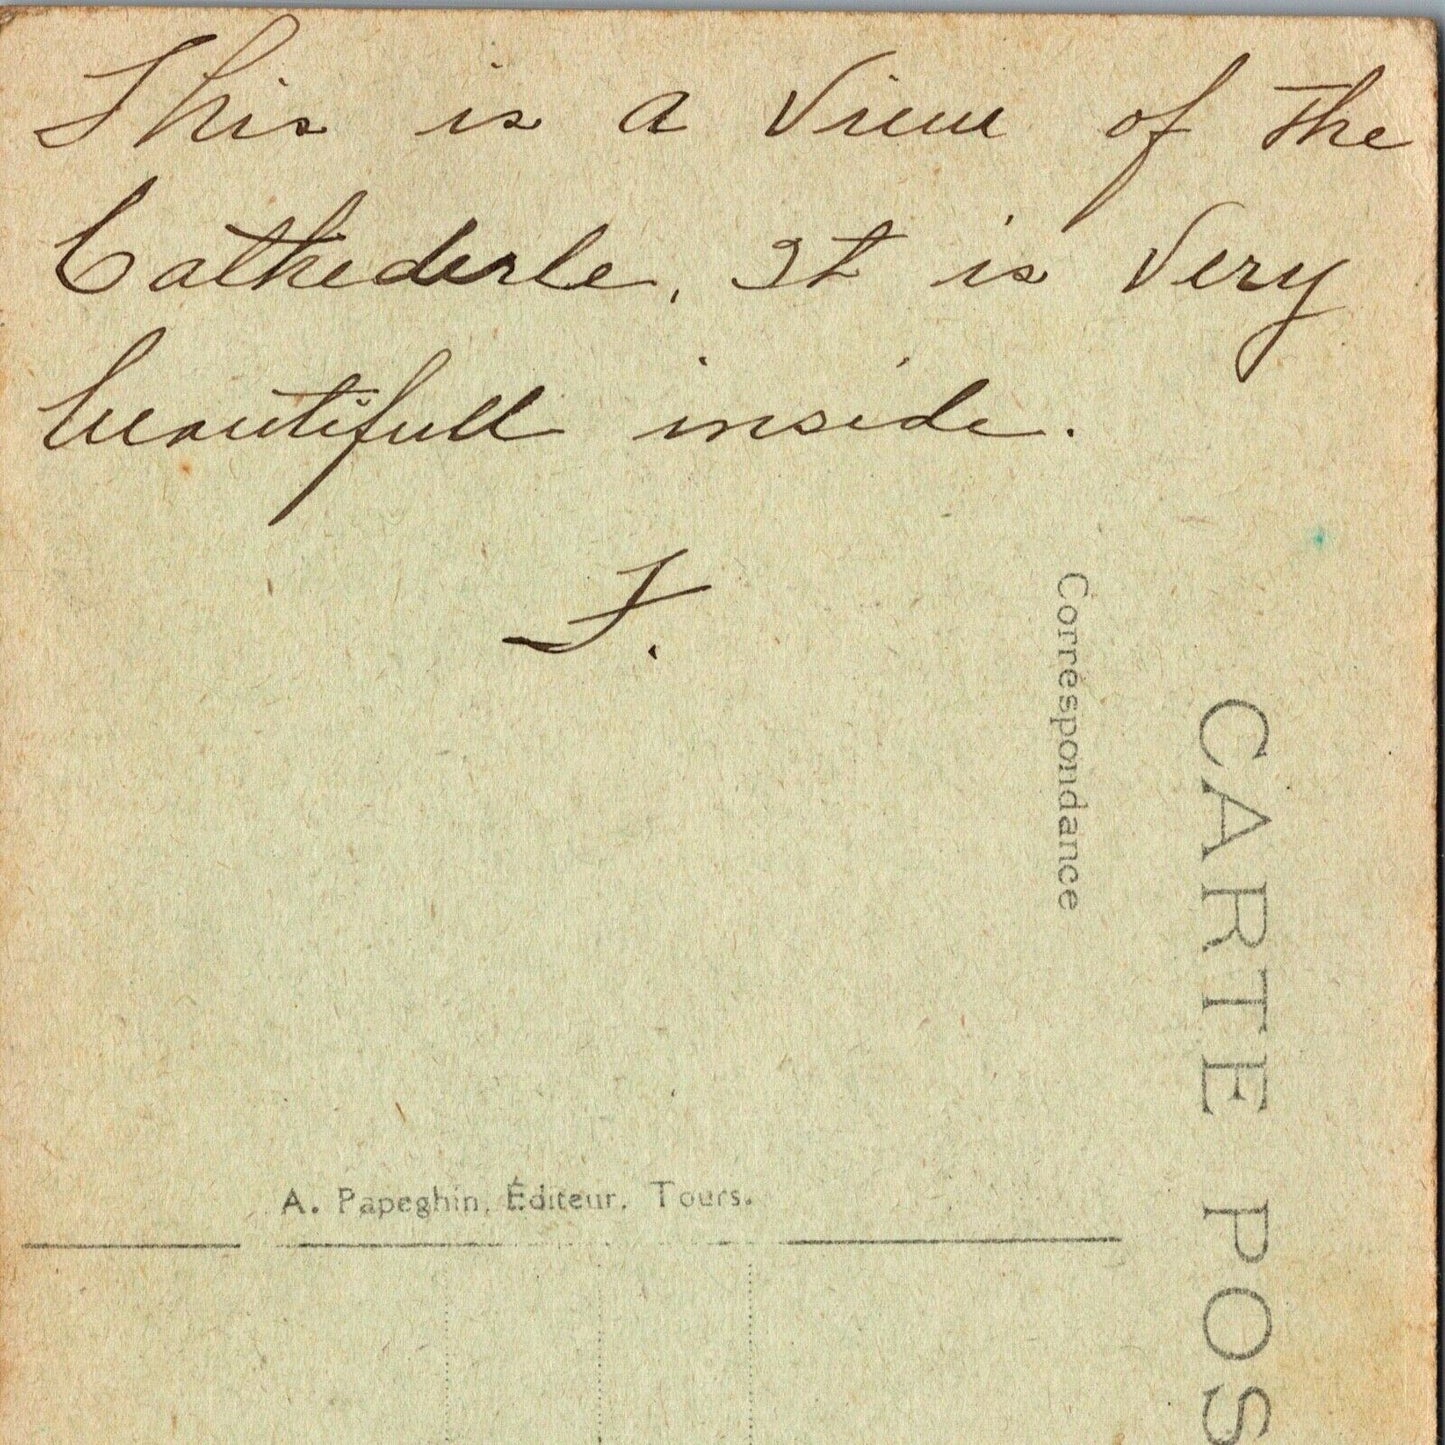 This is a View of the
Cathederle, It is Very
beautifull inside.
F.
Correspondance
CARTE POS
A. Papeghin, Éditeur, Tours.